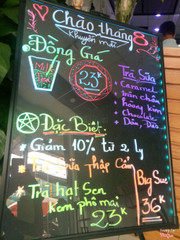 Chào tháng 8
Khuyến mãi
Đồng Giá
23K
Trà Sữa
+ Caramel
+ trân châu
+ Hướng
+ Chocolate
+ Dâu, Dưa
Đặc Biệt
+ Giảm 10% từ 2 ly
Sữa Thập Cẩm
Trà hạt sen
kem phô mai
23K
Big Size
36K